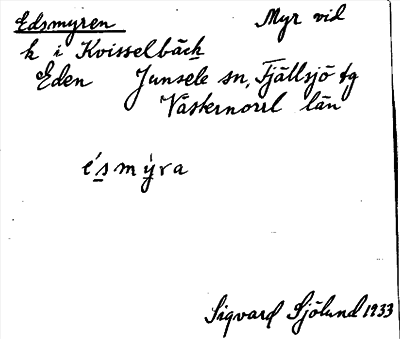 Edsmyren Myr vid
k i Kvisselbäck
Eden Junsele sn, Fjällsjö tg
Västernorrl län
e´s m ý r a
Sigvard Sjölund 1933